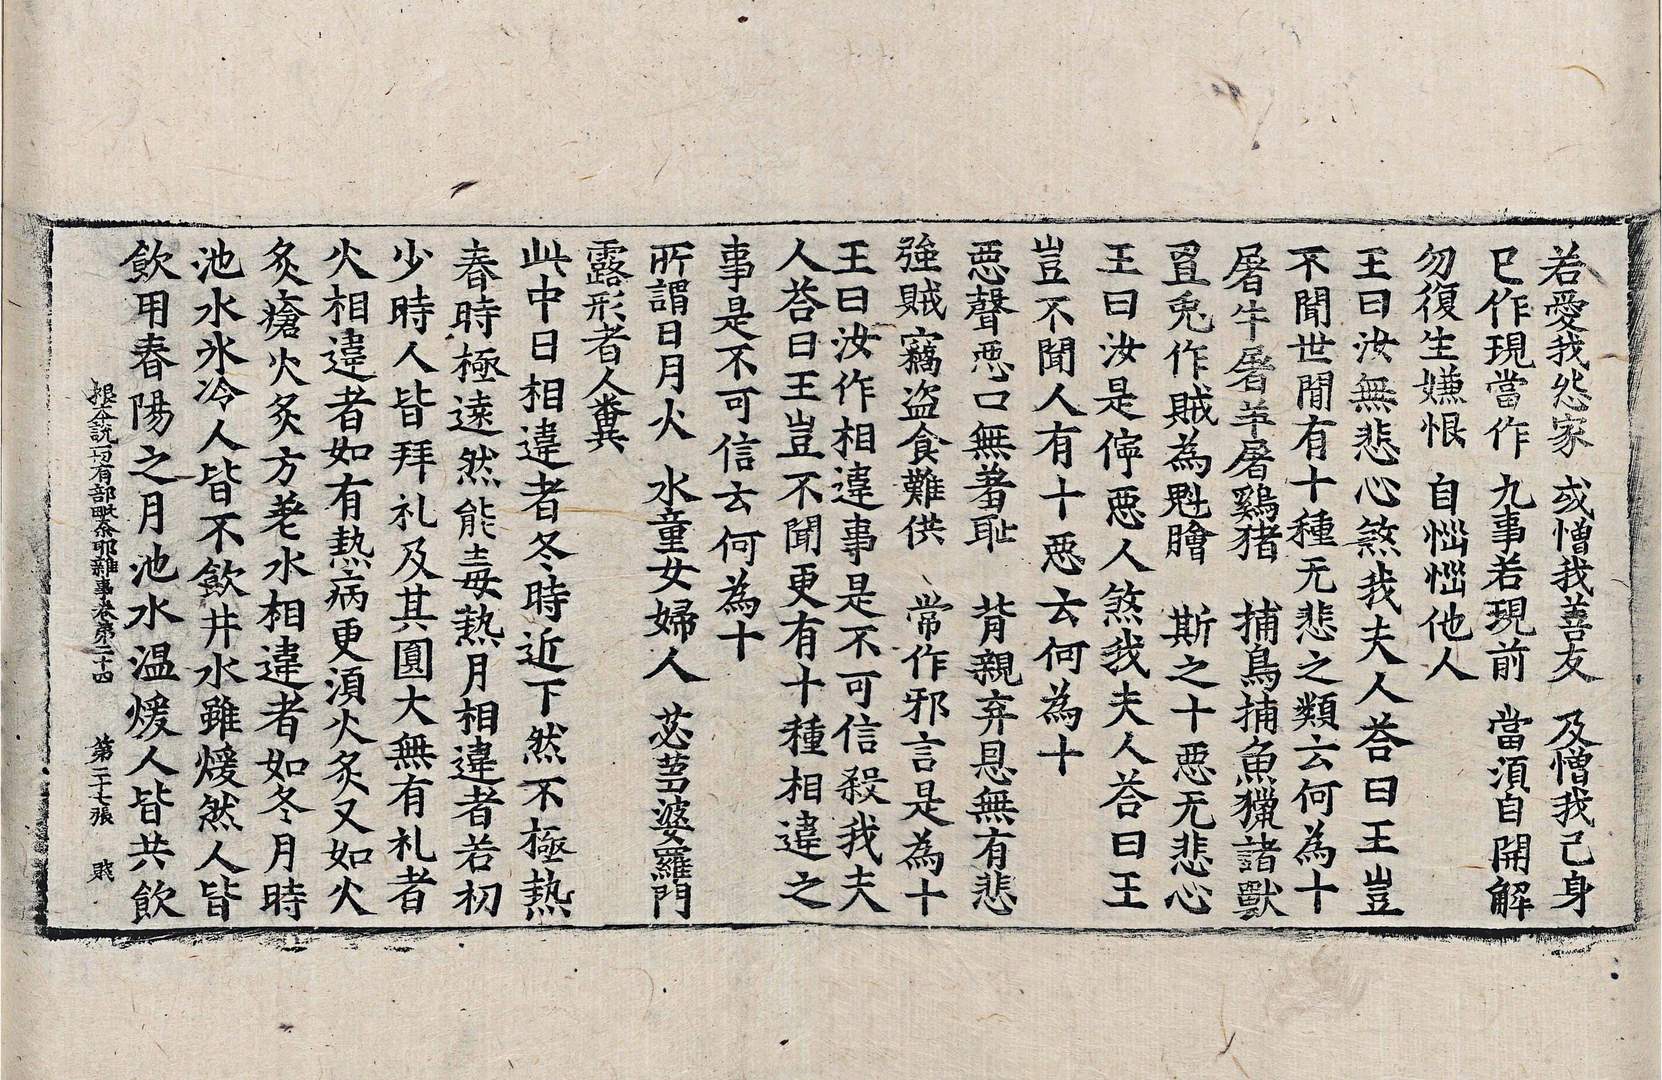 若愛我怨家 或憎我善友 及憎我己身
已作現當作 九事若現前 當須自開解
勿復生嫌恨 自惱惱他人
王曰汝無悲心煞我夫人荅曰王豈
不聞世閒有十種无悲之類云何為十
屠牛屠羊屠鷄猪 捕鳥捕魚獵諸獸
罝兎作賊為魁膾 斯之十惡无悲心
王曰汝是停惡人煞我夫人荅曰王
豈不聞人有十惡云何為十
惡聲惡口無羞耻 背親弃恩無有悲
強賊竊盗食難供 常作邪言是為十
王曰汝作相違事是不可信殺我夫
人荅曰王豈不聞更有十種相違之
事是不可信云何為十
所謂日月火 水童女婦人 苾芻婆羅門
露形者人糞
此中日相違者冬時近下然不極熱
春時極遠然能毒熱月相違者若初
少時人皆拜礼及其圓大無有礼者
火相違者如有熱病更湏火炙又如火
炙瘡火炙方老水相違者如冬月時
池水氷冷人皆不飮井水雖煖然人皆
飮用春陽之月池水温煖人皆共飮
根夲說一切有部毗柰耶雜事卷第二十四 第二十七張 賤